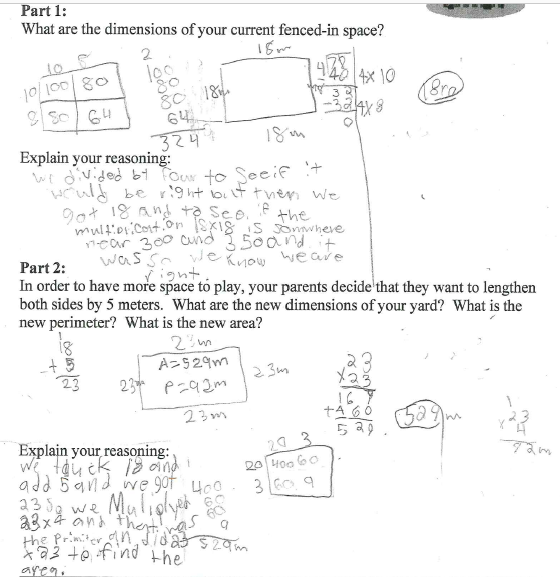 Part 1:
What are the dimensions of your current fenced-in space?
10 8
10 100 80
8 80 64
2
100
80
80
64
324
18m
18m
18m
4x10
32
-32 4x8
0
18m
Explain your reasoning:
we divided bt four to see if it
would be right but then we
got 18 and to see if the
multiplication 18x18 is somwhere
near 300 and 350 and it
was so we know we are
right.
Part 2:
In order to have more space to play, your parents decide that they want to lengthen
both sides by 5 meters. What are the new dimensions of your yard? What is the
new perimeter? What is the new area?
18
+ 5
23
23m
A=529m
P=92m
23m
23m
23m
23
x23
169
+460
529
529m
1
23
x 4
92m
Explain your reasoning:
we touck 18 and
add 5 and we got
23 so we Multiplyed
23x4 and that was
the primiter an did 23
x 23 to find the
area.
20 3
20 400 60
3 60 9
400
60
60
9
529m